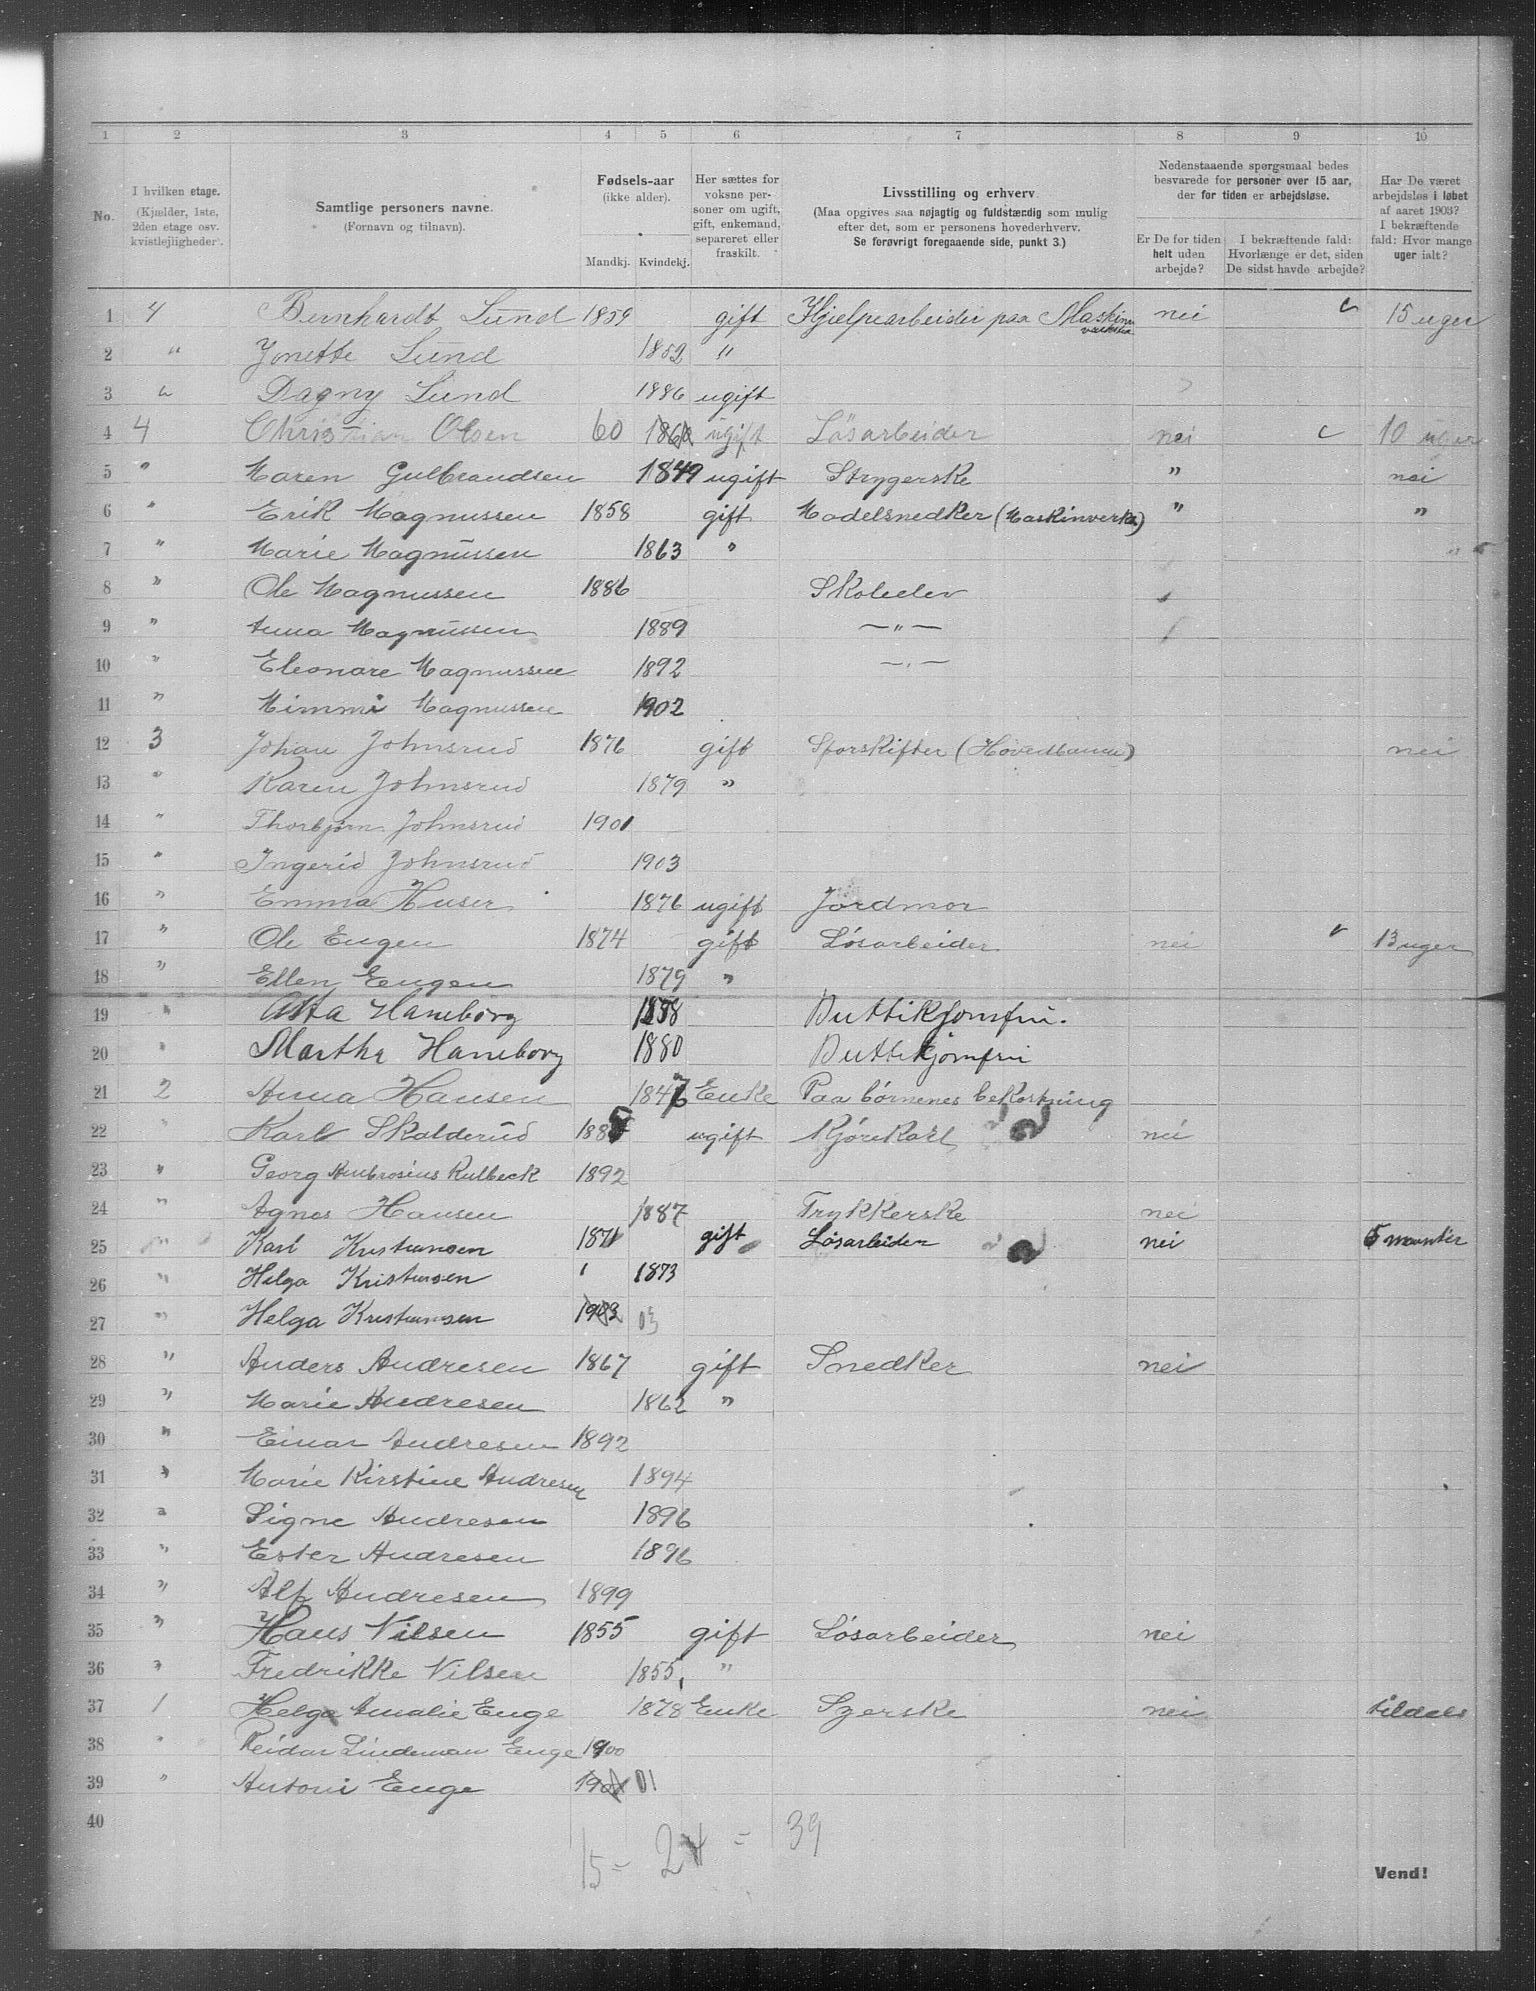 1 2 3 4 5 6 7 8 9 10
No.
I hvilken etage.
(Kjælder, 1ste,
2den etage osv.
kvistlejligheder.
Samtlige personers navne.
(Fornavn og tilnavn).
Fødsels-aar
(ikke alder).
Mandkj. Kvindekj.
Her sættes for
voksne per-
soner om ugift,
gift, enkemand,
separeret eller
fraskilt.
Livsstilling og erhverv.
(Maa opgives saa nøjagtig og fuldstændig som mulig
efter det, som er personens hovederhverv.
Se forøvrigt foregaaende side, punkt 3.)
Nedenstaaende spørgsmaal bedes
besvarede for personer over 15 aar,
der for tiden er arbejdsløse.
Er De for tiden
helt uden
arbejde?
I bekræftende fald:
Hvorlænge er det, siden
De sidst havde arbejde?
Har De været
arbejdsløs i løbet
af aaret 1903?
I bekræftende
fald: Hvor mange
uger ialt?
1 4 Bernhardt Lund 1859 gift Hjelpearbeider paa Maskin nei 15 uger
2 " Jonette Lund 1852 "
3 " Dagny Lund 1886 ugift
4 4 Christian Olsen 60 1860 ugift Løsarbeider nei 10 uger
5 " Maren Gulbrandsen 1849 ugift Strygerske " nei
6 " Erik Magnussen 1858 gift Modelsnedker (Maskinverks) " "
7 " Marie Magnussen 1863 "
8 " Ole Magnussen 1886 Skoleelev
9 " Anna Magnussen 1889 — " —
10 " Eleonore Magnussen 1892 — " —
11 " Mimmi Magnussen 1902
12 3 Johan Johnsrud 1876 gift Sporskifter (Hovedbanen) nei
13 " Karen Johnsrud 1879 "
14 " Thorbjørn Johnsrud 1901
15 " Ingerid Johnsrud 1903
16 " Emma Huser 1876 ugift Jordmor
17 " Ole Engen 1874 gift Løsarbeider nei 13 uger
18 " Ellen Engen 1879 "
19 " Asta Haneborg 1888 Buttikjomfru.
20 " Martha Haneborg 1880 Buttikjomfru
21 2 Anna Hansen 1847 Enke Paa børnenes bekostning
22 " Karl Skolderud 1885 ugift Kjørekarl nei
23 " Georg Ambrosius Rulbeck 1892
24 " Agnes Hansen 1887 Trykkerske nei
25 " Karl Kristiansen 1871 gift Løsarbeider nei 5 maanter
26 " Helga Kristiansen 1873
27 " Helga Kristiansen 1903 03
28 " Anders Andresen 1867 gift Snedker nei
29 " Marie Andresen 1862 "
30 " Einar Andresen 1892
31 " Marie Kirstine Andresen 1894
32 " Signe Andresen 1896
33 " Ester Andresen 1896
34 " Alf Andresen 1899
35 " Hans Nilsen 1855 gift Løsarbeider nei
36 " Fredrikke Nilsen 1855 "
37 1 Helga Amalie Enge 1878 Enke Syerske nei tildels
38 " Reidar Lindeman Enge 1900
39 " Antoni Enge 1901 01
40
15 - 24 = 39
Vend!